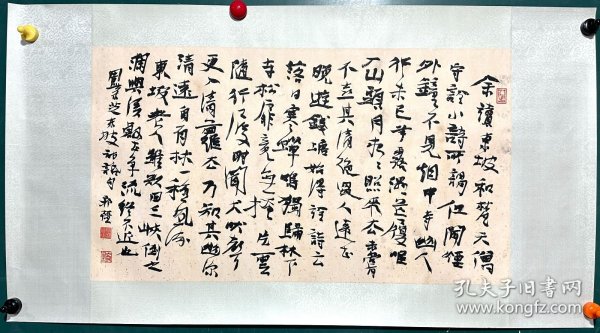 余讀東坡和梵天僧
守詮小詩所謂但聞煙
外鐘不見烟中寺幽人
行未已草露濕芒屨惟
山頭月夜夜照來去未嘗
不喜其清絕過人遠甚
晚遊錢塘始得詮詩云
落日寒蟬鳴獨歸林下
寺松扉竟無掩片雲
隨行屨時聞犬吠聲
更入清蘿去乃知其幽深
清遠自有林一種風流
東坡老人雖欲回三峽倒之
瀾與溪壑爭流終不近也
周紫芝
孔夫子旧书网
www.kongfz.com